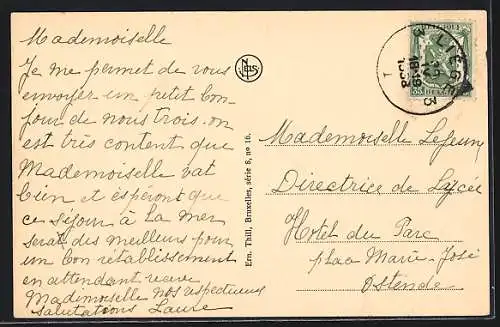 Mademoiselle
Je me permet de vous
envoyer un petit bon-
jour de nous trois. on
est très content que
Mademoiselle vat
bien et espéront que
ce séjour à la mer
serat des meilleurs pour
un bon rétablissement
en attendant recevé
Mademoiselle nos respectueus
salutations Laure
NELS
Ern. Thill, Bruxelles, série 6, no 16.
BELGIQUE
LIEGE 3
35
Mademoiselle Lejeune
Directrice de Lycée
Hotel du Parc
place Marie-José
Ostende